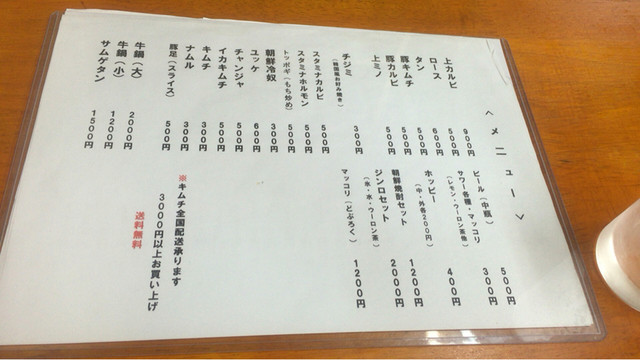 ＜メニュー＞
上カルビ 900円
ロース 500円
タン 600円
豚キムチ 500円
豚カルビ 500円
上ミノ 500円
チジミ 300円
（韓国風お好み焼き）
スタミナカルビ 500円
スタミナホルモン 500円
トッポギ（もち炒め） 500円
朝鮮冷奴 300円
ユッケ 600円
チャンジャ 500円
イカキムチ 500円
キムチ 300円
ナムル 300円
豚足（スライス） 500円
牛鍋（大） 2000円
牛鍋（小） 1200円
サムゲタン 1500円
ビール（中瓶） 500円
サワー各種・マッコリ 300円
（レモン・ウーロン茶他）
ホッピー 400円
（中・外各200円）
朝鮮焼酎セット 1200円
ジンロセット 2000円
（氷・水・ウーロン茶）
マッコリ（どぶろく） 1200円
※キムチ全国配送承ります
3000円以上お買い上げ
送料無料